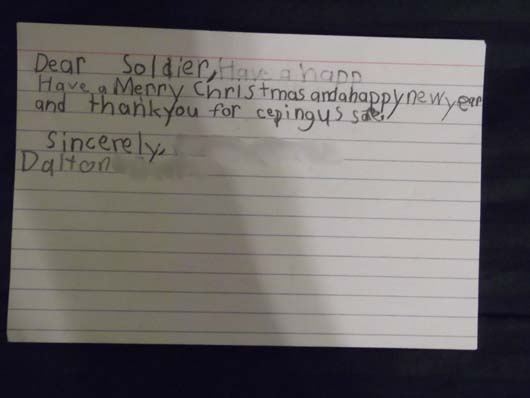 Dear Soldier, Have a happ
Have a Merry Christmas and a happy new year
and thankyou for cepingus safe.
Sincerely,
Dalton